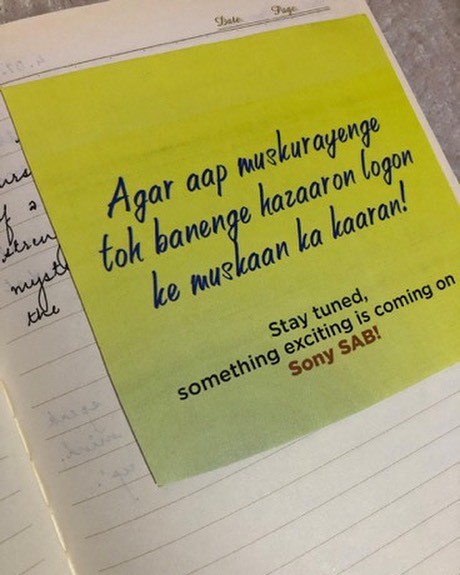 Date. Page.
Agar aap muskurayenge
toh banenge hazaaron logon
ke muskaan ka kaaran!
Stay tuned,
something exciting is coming on
Sony SAB!
urs
of a
myste
the